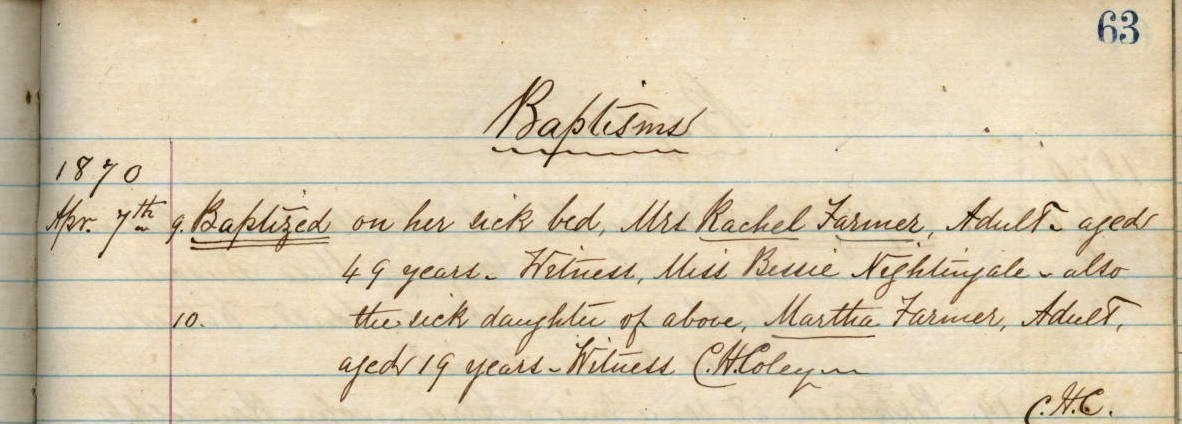 63
Baptisms
1870
Apr. 7th 9. Baptized on her sick bed, Mrs Rachel Farmer, Adult - aged
49 years - Witness, Miss Bessie Nightingale - also
10. the sick daughter of above, Martha Farmer, Adult,
aged 19 years - Witness C.H.Coley
C.H.C.